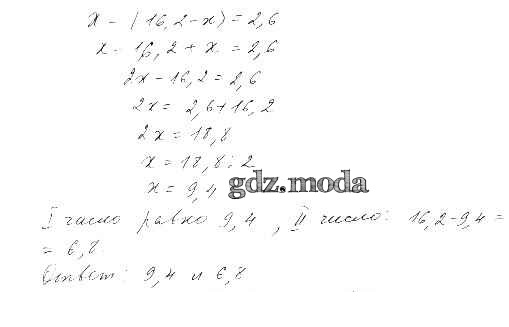 x - (16,2 - x) = 2,6
x - 16,2 + x = 2,6
2x - 16,2 = 2,6
2x = 2,6 + 16,2
2x = 18,8
x = 18,8 : 2
x = 9,4
gdz.moda
I число равно 9,4, II число: 16,2 - 9,4 =
= 6,8.
Ответ: 9,4 и 6,8